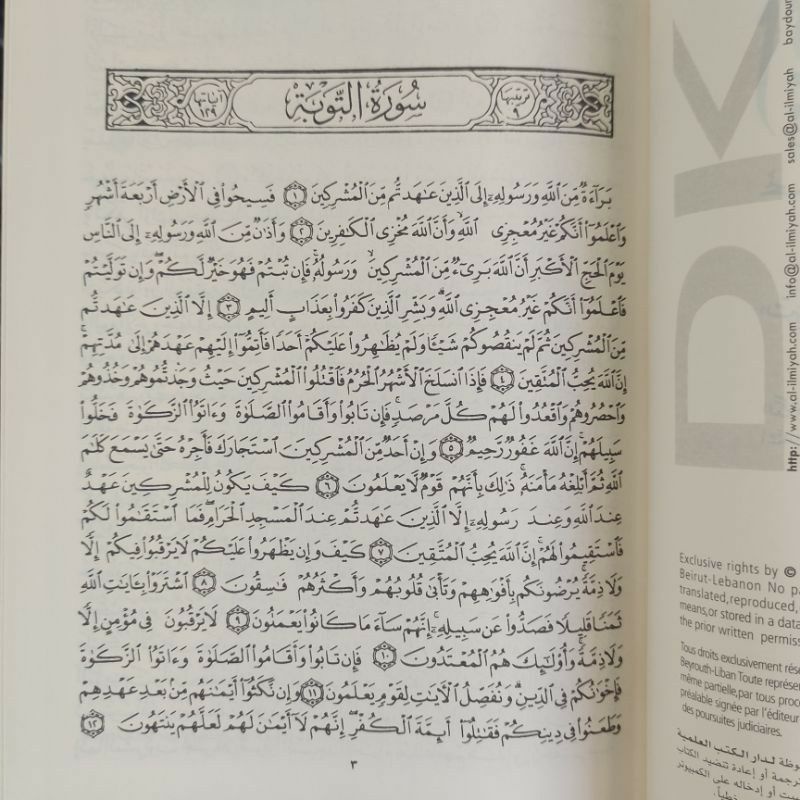 ترتيبها ٩
سُورَةُ التَّوبَةِ
آياتها ١٢٩
بَرَآءَةٌ مِّنَ ٱللَّهِ وَرَسُولِهِۦٓ إِلَى ٱلَّذِينَ عَٰهَدتُّم مِّنَ ٱلْمُشْرِكِينَ ١ فَسِيحُوا۟ فِى ٱلْأَرْضِ أَرْبَعَةَ أَشْهُرٍ
وَٱعْلَمُوٓا۟ أَنَّكُمْ غَيْرُ مُعْجِزِى ٱللَّهِ ۙ وَأَنَّ ٱللَّهَ مُخْزِى ٱلْكَٰفِرِينَ ٢ وَأَذَٰنٌ مِّنَ ٱللَّهِ وَرَسُولِهِۦٓ إِلَى ٱلنَّاسِ
يَوْمَ ٱلْحَجِّ ٱلْأَكْبَرِ أَنَّ ٱللَّهَ بَرِىٓءٌ مِّنَ ٱلْمُشْرِكِينَ ۙ وَرَسُولُهُۥ ۚ فَإِن تُبْتُمْ فَهُوَ خَيْرٌ لَّكُمْ ۖ وَإِن تَوَلَّيْتُمْ
فَٱعْلَمُوٓا۟ أَنَّكُمْ غَيْرُ مُعْجِزِى ٱللَّهِ ۗ وَبَشِّرِ ٱلَّذِينَ كَفَرُوا۟ بِعَذَابٍ أَلِيمٍ ٣ إِلَّا ٱلَّذِينَ عَٰهَدتُّم
مِّنَ ٱلْمُشْرِكِينَ ثُمَّ لَمْ يَنقُصُوكُمْ شَيْـًٔا وَلَمْ يُظَٰهِرُوا۟ عَلَيْكُمْ أَحَدًا فَأَتِمُّوٓا۟ إِلَيْهِمْ عَهْدَهُمْ إِلَىٰ مُدَّتِهِمْ ۚ
إِنَّ ٱللَّهَ يُحِبُّ ٱلْمُتَّقِينَ ٤ فَإِذَا ٱنسَلَخَ ٱلْأَشْهُرُ ٱلْحُرُمُ فَٱقْتُلُوا۟ ٱلْمُشْرِكِينَ حَيْثُ وَجَدتُّمُوهُمْ وَخُذُوهُمْ
وَٱحْصُرُوهُمْ وَٱقْعُدُوا۟ لَهُمْ كُلَّ مَرْصَدٍ ۚ فَإِن تَابُوا۟ وَأَقَامُوا۟ ٱلصَّلَوٰةَ وَءَاتَوُا۟ ٱلزَّكَوٰةَ فَخَلُّوا۟
سَبِيلَهُمْ ۚ إِنَّ ٱللَّهَ غَفُورٌ رَّحِيمٌ ٥ وَإِنْ أَحَدٌ مِّنَ ٱلْمُشْرِكِينَ ٱسْتَجَارَكَ فَأَجِرْهُ حَتَّىٰ يَسْمَعَ كَلَٰمَ
ٱللَّهِ ثُمَّ أَبْلِغْهُ مَأْمَنَهُۥ ۚ ذَٰلِكَ بِأَنَّهُمْ قَوْمٌ لَّا يَعْلَمُونَ ٦ كَيْفَ يَكُونُ لِلْمُشْرِكِينَ عَهْدٌ
عِندَ ٱللَّهِ وَعِندَ رَسُولِهِۦٓ إِلَّا ٱلَّذِينَ عَٰهَدتُّمْ عِندَ ٱلْمَسْجِدِ ٱلْحَرَامِ ۖ فَمَا ٱسْتَقَٰمُوا۟ لَكُمْ
فَٱسْتَقِيمُوا۟ لَهُمْ ۚ إِنَّ ٱللَّهَ يُحِبُّ ٱلْمُتَّقِينَ ٧ كَيْفَ وَإِن يَظْهَرُوا۟ عَلَيْكُمْ لَا يَرْقُبُوا۟ فِيكُمْ إِلًّا
وَلَا ذِمَّةً ۚ يُرْضُونَكُم بِأَفْوَٰهِهِمْ وَتَأْبَىٰ قُلُوبُهُمْ وَأَكْثَرُهُمْ فَٰسِقُونَ ٨ ٱشْتَرَوْا۟ بِـَٔايَٰتِ ٱللَّهِ
ثَمَنًا قَلِيلًا فَصَدُّوا۟ عَن سَبِيلِهِۦٓ ۚ إِنَّهُمْ سَآءَ مَا كَانُوا۟ يَعْمَلُونَ ٩ لَا يَرْقُبُونَ فِى مُؤْمِنٍ إِلًّا
وَلَا ذِمَّةً ۚ وَأُو۟لَٰٓئِكَ هُمُ ٱلْمُعْتَدُونَ ١٠ فَإِن تَابُوا۟ وَأَقَامُوا۟ ٱلصَّلَوٰةَ وَءَاتَوُا۟ ٱلزَّكَوٰةَ
فَإِخْوَٰنُكُمْ فِى ٱلدِّينِ ۗ وَنُفَصِّلُ ٱلْءَايَٰتِ لِقَوْمٍ يَعْلَمُونَ ١١ وَإِن نَّكَثُوٓا۟ أَيْمَٰنَهُم مِّنۢ بَعْدِ عَهْدِهِمْ
وَطَعَنُوا۟ فِى دِينِكُمْ فَقَٰتِلُوٓا۟ أَئِمَّةَ ٱلْكُفْرِ ۙ إِنَّهُمْ لَآ أَيْمَٰنَ لَهُمْ لَعَلَّهُمْ يَنتَهُونَ ١٢
٣
DK
http://www.al-ilmiyah.com info@al-ilmiyah.com sales@al-ilmiyah baydoun
Exclusive rights by ©
Beirut-Lebanon No pa
translated,reproduced,
means,or stored in a data
the prior written permiss
Tous droits exclusivement rése
Beyrouth-Liban Toute représen
même partielle,par tous procé
préalable signée par l'éditeur
des poursuites judiciaires.
وظة لدار الكتب العلمية
ترجمة أو إعادة تنضيد الكتاب
أو إدخاله على الكمبيوتر